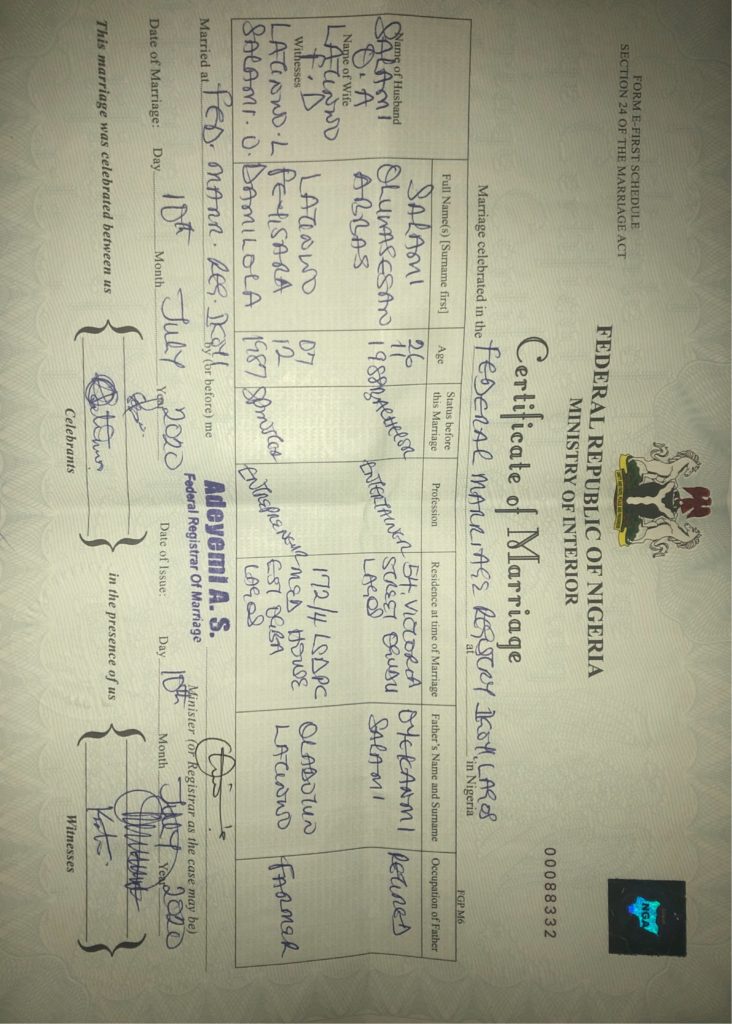 FORM E-FIRST SCHEDULE
SECTION 24 OF THE MARRIAGE ACT
FEDERAL REPUBLIC OF NIGERIA
MINISTRY OF INTERIOR
NGA
00088332
Certificate of Marriage
FGP M6
Marriage celebrated in the FEDERAL MARRIAGE REGISTRY IKOYI, LAGOS
at in Nigeria
Name of Husband
Full Name(s) [Surname first]
Age
Status before this Marriage
Profession
Residence at time of Marriage
Father's Name and Surname
Occupation of Father
SALAMI O. A
SALAMI OLUWASESAN ABBAS
26 11 1988
BACHELOR
ENTERTAINER
54, VICTORIA STREET LAGOS
OYEKANMI SALAMI
RETIRED
Name of Wife
LATUNWO P. D
Witnesses
LATUNWO. L
SALAMI. O.
LATUNWO PEMISARA DAMILOLA
07 12 1987
SPINSTER
ENTREPRENEUR
172/4 LSDPC MED HOUSE EST LAGOS
OLABOTUN LATUNWO
FARMER
Married at FED. MARR. REG. IKOYI by (or before) me
Adeyemi A. S.
Federal Registrar Of Marriage
Minister (or Registrar as the case may be)
Date of Marriage: Day 10th Month July Year 2020 Date of Issue: Day 10th Month July Year 2020
This marriage was celebrated between us
in the presence of us
Celebrants
Witnesses